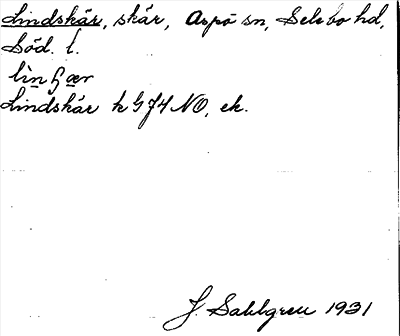 Lindskär, skär, Aspö sn, Selebo hd,
Söd. l.
Lindskär k G J4 NO, ek.
J. Sahlgren 1931